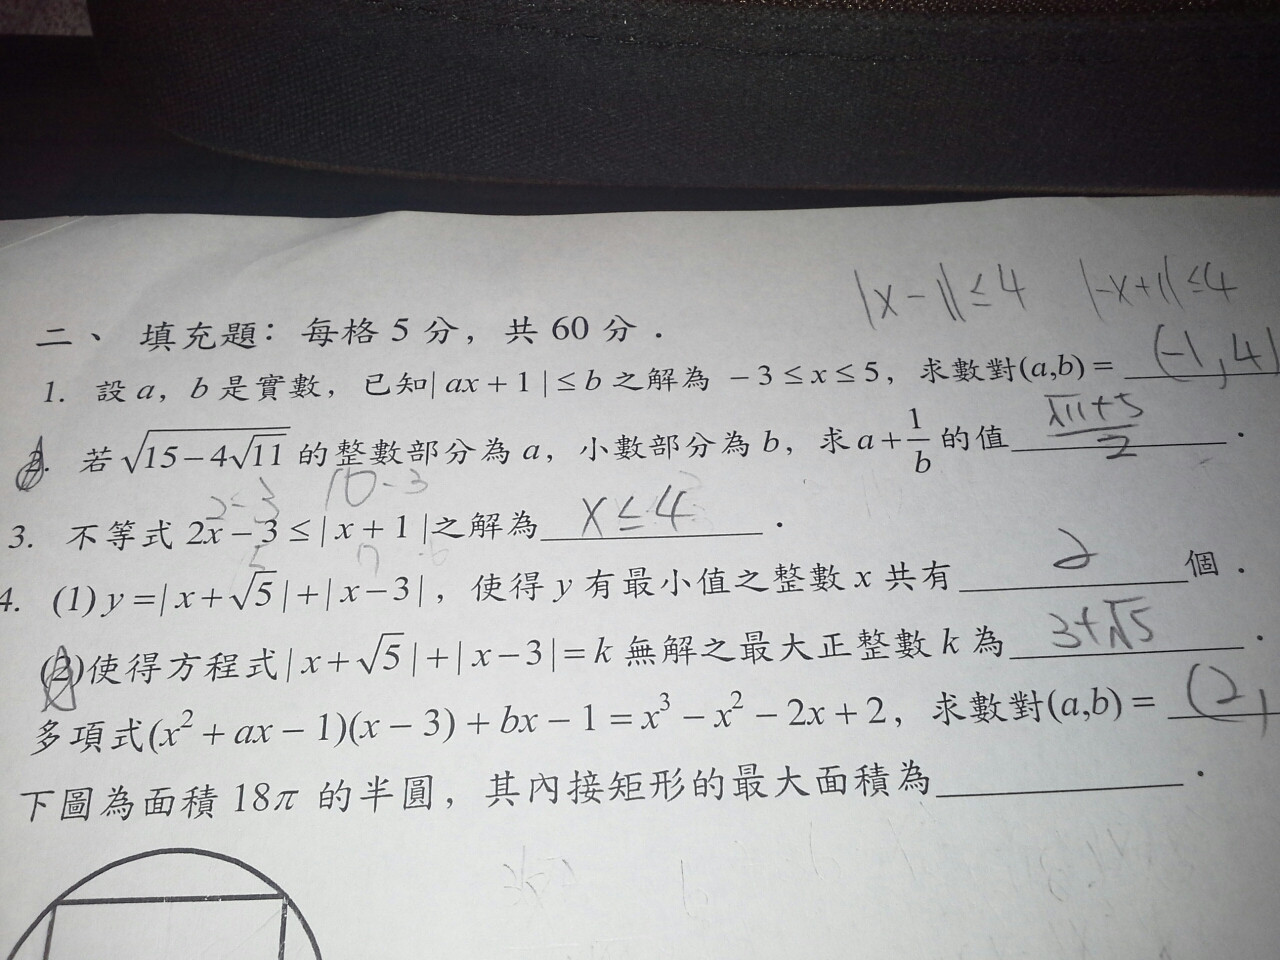 |x-1|≤4 |-x+1|≤4
二、填充題：每格 5 分，共 60 分．
1. 設 a，b 是實數，已知| ax + 1 | ≤ b 之解為 −3 ≤ x ≤ 5，求數對(a,b) = (-1,4)
2. 若 √(15−4√11) 的整數部分為 a，小數部分為 b，求 a + 1/b 的值 (√11+5)/2 ．
2-3 10-3
3. 不等式 2x − 3 ≤ | x + 1 |之解為 x≤4 ．
5
4. (1) y =| x + √5 | + | x − 3 |，使得 y 有最小值之整數 x 共有 2 個．
(2)使得方程式| x + √5 | + | x − 3 | = k 無解之最大正整數 k 為 3+√5 ．
多項式(x² + ax − 1)(x − 3) + bx − 1 = x³ − x² − 2x + 2，求數對(a,b) = (2,
下圖為面積 18π 的半圓，其內接矩形的最大面積為 ．